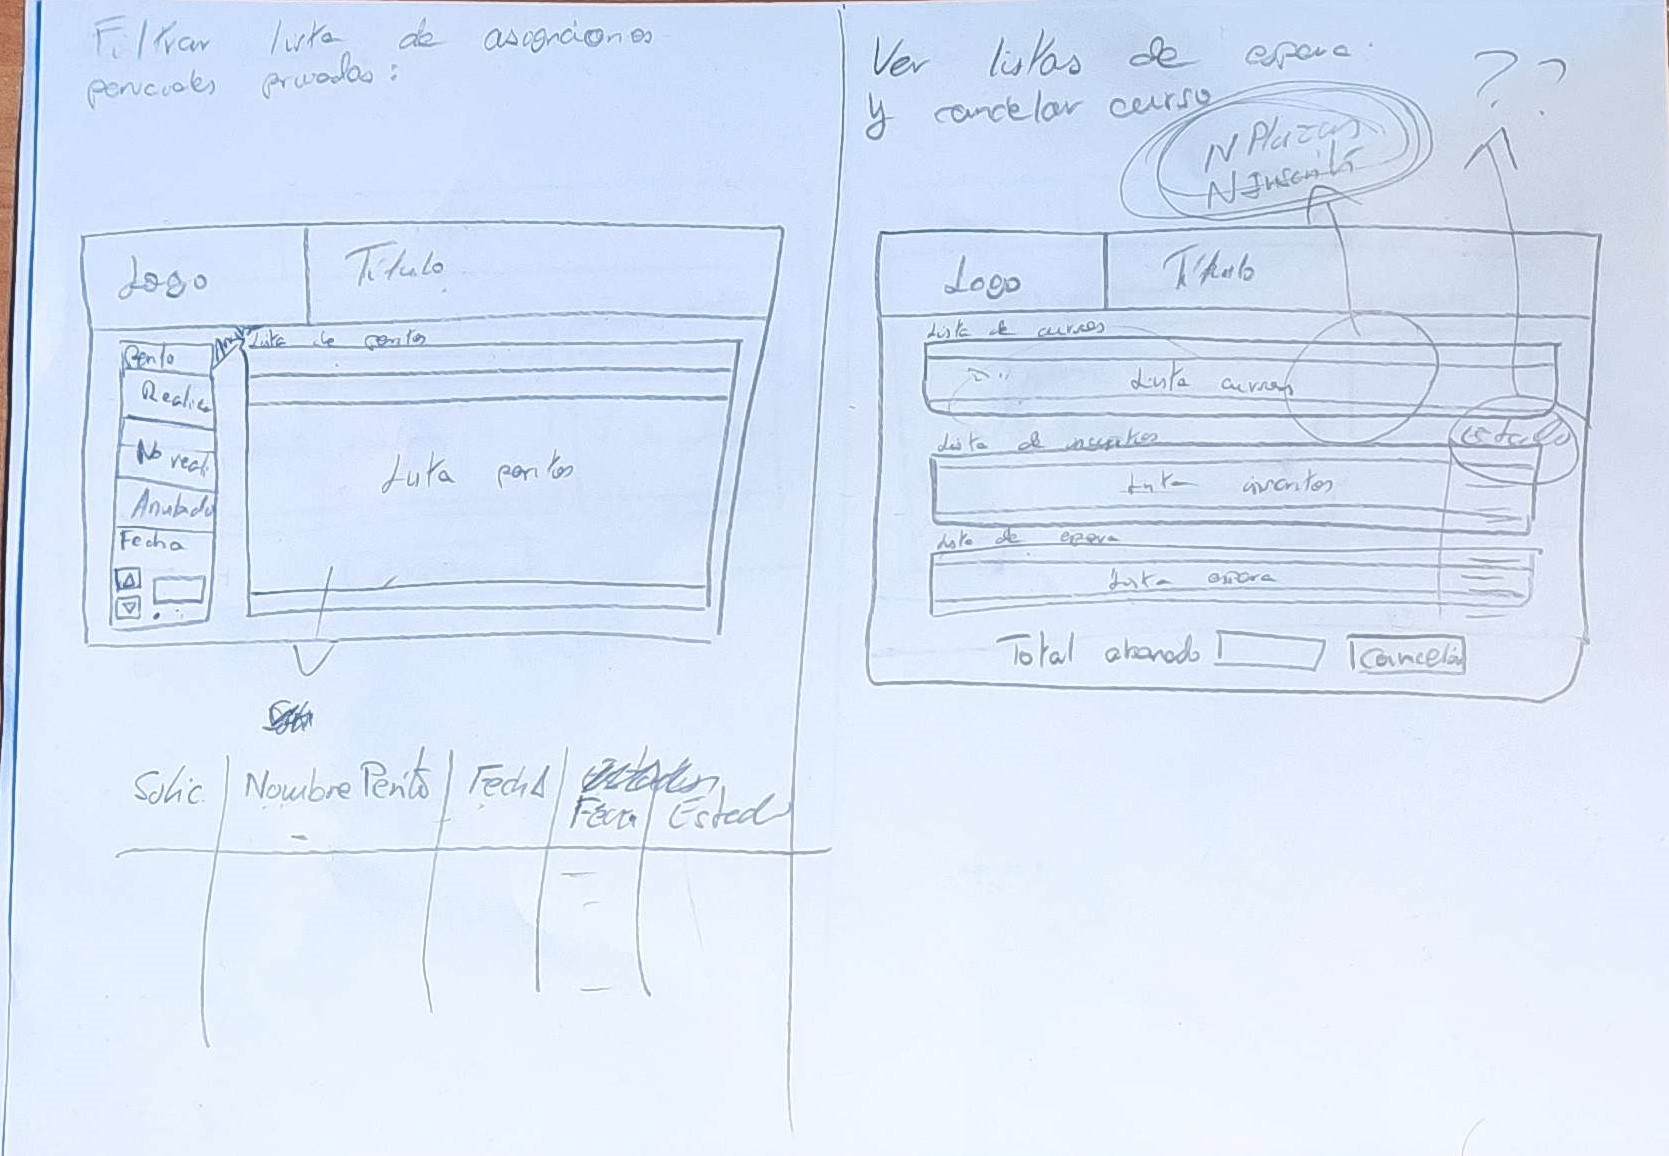 Filtrar lista de asignaciones
periciales privadas:
Logo
Título
Lista de peritos
Perito
Realiza
No reali
Anulado
Fecha
Lista peritos
Solic.
Nombre Perito
Fecha
Fecha
Estado
Ver listas de espera
y cancelar curso
??
N Plazas
N Inscrit
Logo
Título
Lista de cursos
Lista cursos
Lista de inscritos
Estado
Lista inscritos
Lista de espera
Lista espera
Total abonado
Cancelar